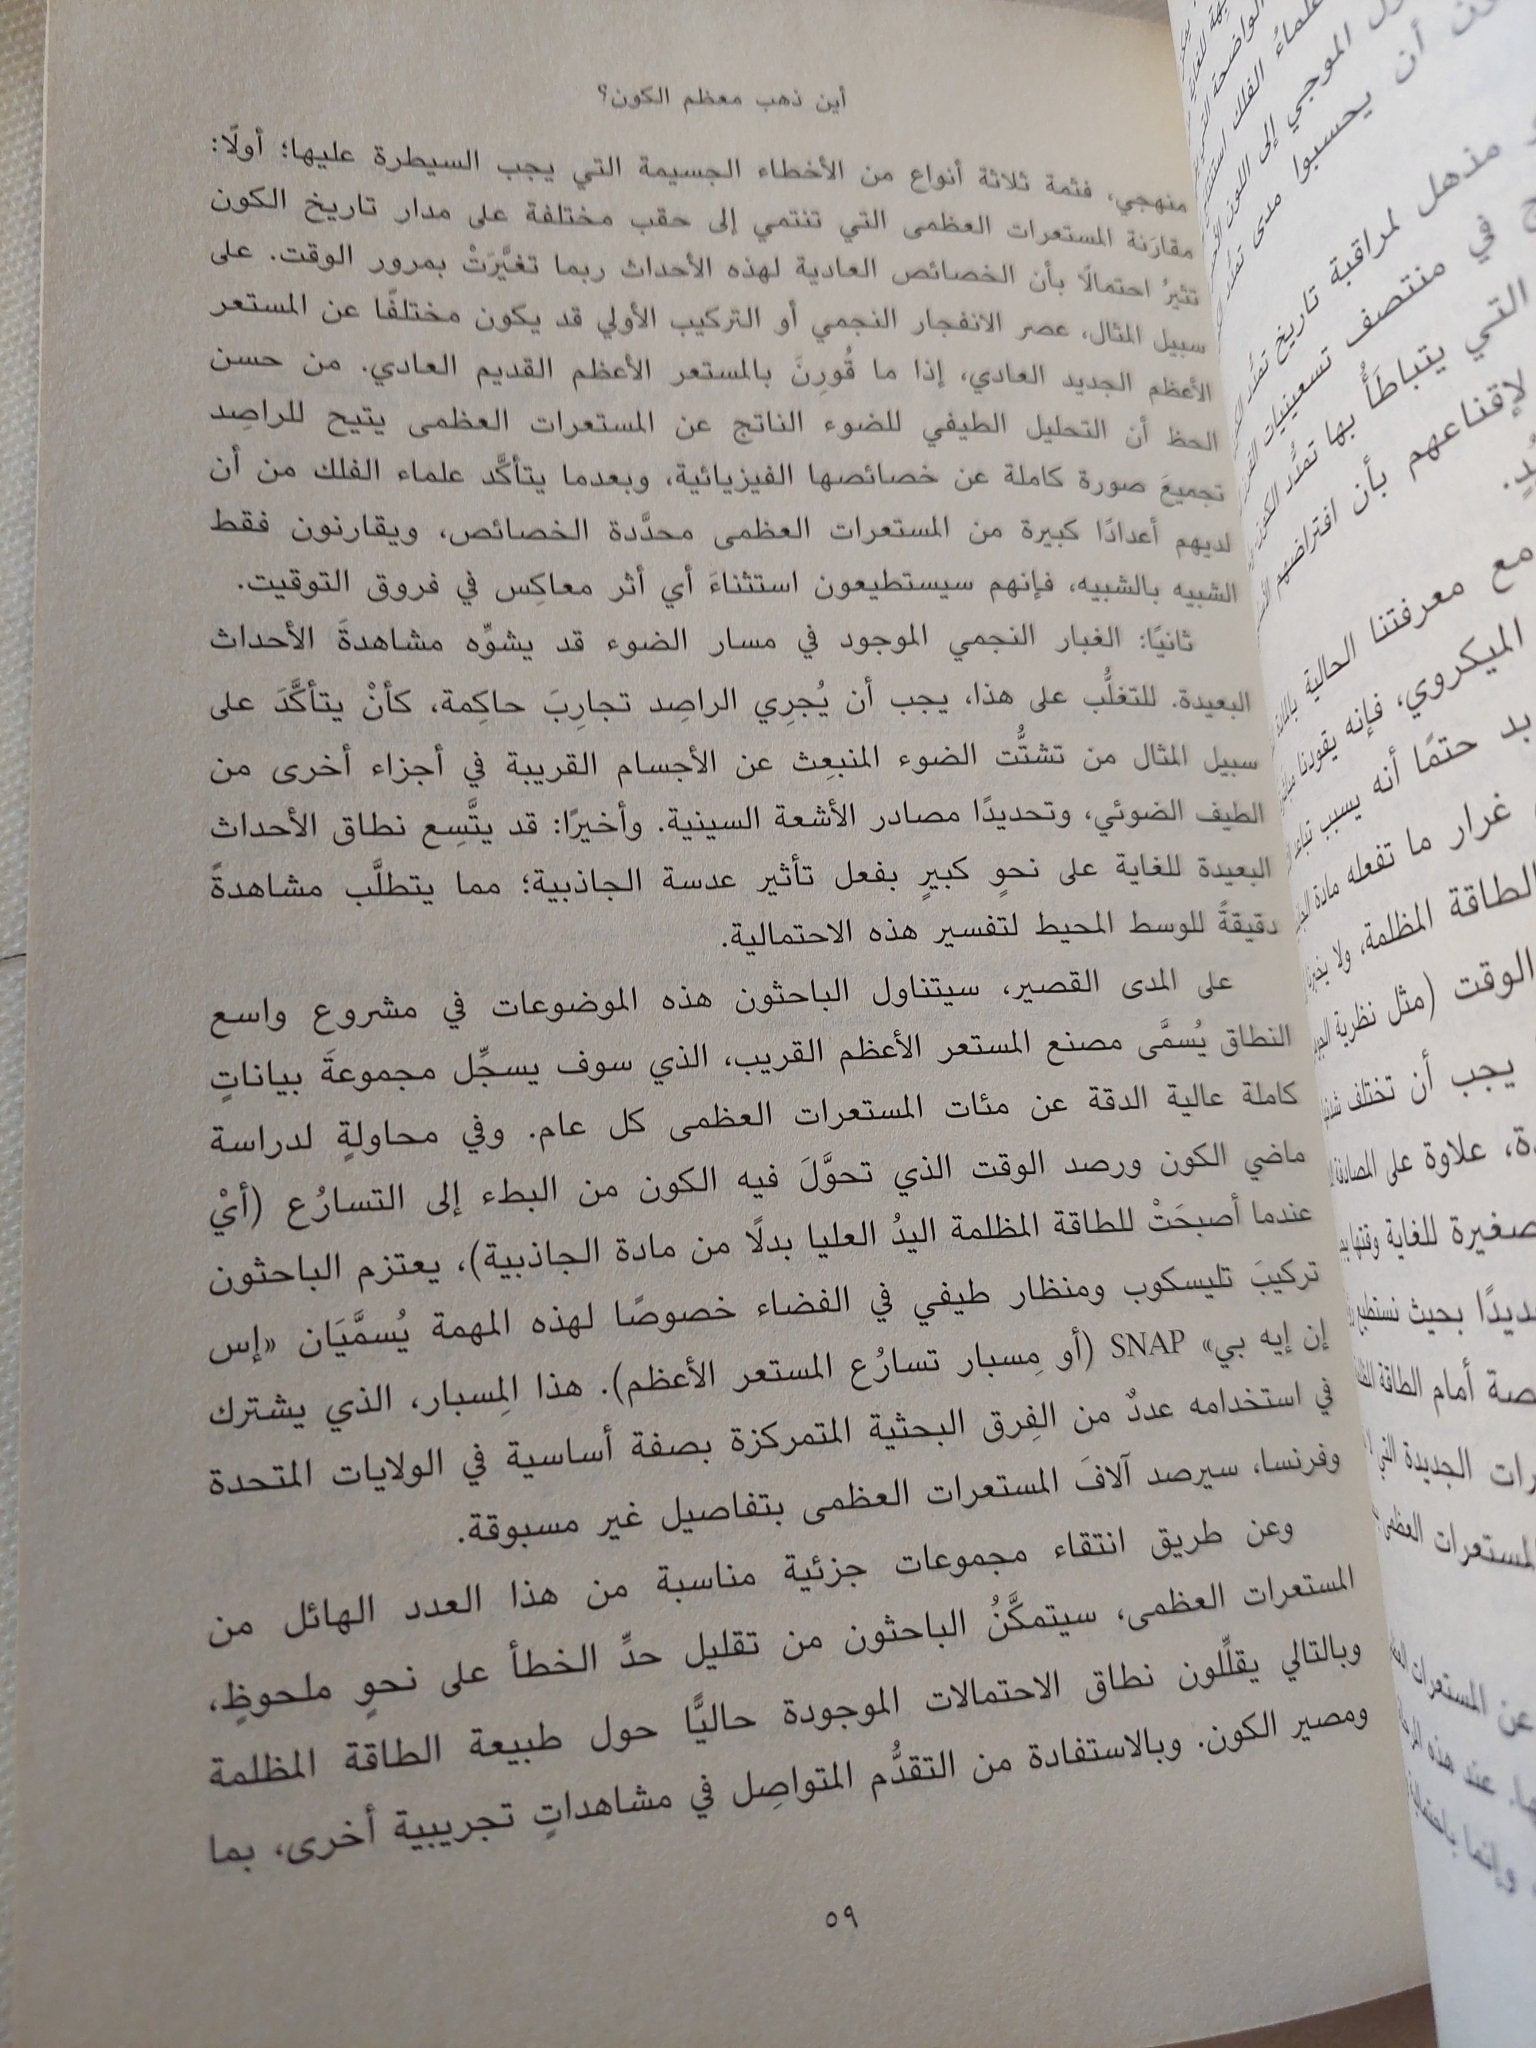 أين ذهب معظم الكون؟
منهجي، فثمة ثلاثة أنواع من الأخطاء الجسيمة التي يجب السيطرة عليها؛ أولًا:
مقارَنة المستعرات العظمى التي تنتمي إلى حقب مختلفة على مدار تاريخ الكون
تثيرُ احتمالًا بأن الخصائص العادية لهذه الأحداث ربما تغيَّرَتْ بمرور الوقت. على
سبيل المثال، عصر الانفجار النجمي أو التركيب الأولي قد يكون مختلفًا عن المستعر
الأعظم الجديد العادي، إذا ما قُورِنَ بالمستعر الأعظم القديم العادي. من حسن
الحظ أن التحليل الطيفي للضوء الناتج عن المستعرات العظمى يتيح للراصِد
تجميعَ صورة كاملة عن خصائصها الفيزيائية، وبعدما يتأكَّد علماء الفلك من أن
لديهم أعدادًا كبيرة من المستعرات العظمى محدَّدة الخصائص، ويقارنون فقط
الشبيه بالشبيه، فإنهم سيستطيعون استثناءَ أي أثر معاكِس في فروق التوقيت.
ثانيًا: الغبار النجمي الموجود في مسار الضوء قد يشوِّه مشاهدةَ الأحداث
البعيدة. للتغلُّب على هذا، يجب أن يُجرِي الراصِد تجارِبَ حاكِمة، كأنْ يتأكَّدَ على
سبيل المثال من تشتُّت الضوء المنبعِث عن الأجسام القريبة في أجزاء أخرى من
الطيف الضوئي، وتحديدًا مصادر الأشعة السينية. وأخيرًا: قد يتَّسِع نطاق الأحداث
البعيدة للغاية على نحوٍ كبيرٍ بفعل تأثير عدسة الجاذبية؛ مما يتطلَّب مشاهدةً
دقيقةً للوسط المحيط لتفسير هذه الاحتمالية.
على المدى القصير، سيتناول الباحثون هذه الموضوعات في مشروع واسع
النطاق يُسمَّى مصنع المستعر الأعظم القريب، الذي سوف يسجِّل مجموعةَ بياناتٍ
كاملة عالية الدقة عن مئات المستعرات العظمى كل عام. وفي محاولةٍ لدراسة
ماضي الكون ورصد الوقت الذي تحوَّلَ فيه الكون من البطء إلى التسارُع (أيْ
عندما أصبحَتْ للطاقة المظلمة اليدُ العليا بدلًا من مادة الجاذبية)، يعتزم الباحثون
تركيبَ تليسكوب ومنظار طيفي في الفضاء خصوصًا لهذه المهمة يُسمَّيَان «إس
إن إيه بي» SNAP (أو مِسبار تسارُع المستعر الأعظم). هذا المِسبار، الذي يشترك
في استخدامه عددٌ من الفِرق البحثية المتمركزة بصفة أساسية في الولايات المتحدة
وفرنسا، سيرصد آلافَ المستعرات العظمى بتفاصيل غير مسبوقة.
وعن طريق انتقاء مجموعات جزئية مناسبة من هذا العدد الهائل من
المستعرات العظمى، سيتمكَّنُ الباحثون من تقليل حدِّ الخطأ على نحوٍ ملحوظٍ،
وبالتالي يقلِّلون نطاق الاحتمالات الموجودة حاليًّا حول طبيعة الطاقة المظلمة
ومصير الكون. وبالاستفادة من التقدُّم المتواصِل في مشاهداتٍ تجريبية أخرى، بما
٥٩
أن يحسبوا مدى
مذهل لمراقبة تاريخ
في منتصف تسعينيات
التي يتباطَأُ بها تمدُّد الكون
لإقناعهم بأن افتراضهم
مع معرفتنا الحالية
الميكروي، فإنه يقودنا
بد حتمًا أنه يسبب
غرار ما تفعله مادة
الطاقة المظلمة، ولا
الوقت (مثل نظرية
يجب أن تختلف
علاوة على
صغيرة للغاية
بحيث نستطيع
أمام الطاقة
الجديدة التي
المستعرات العظمى
عن المستعرات
عند هذه